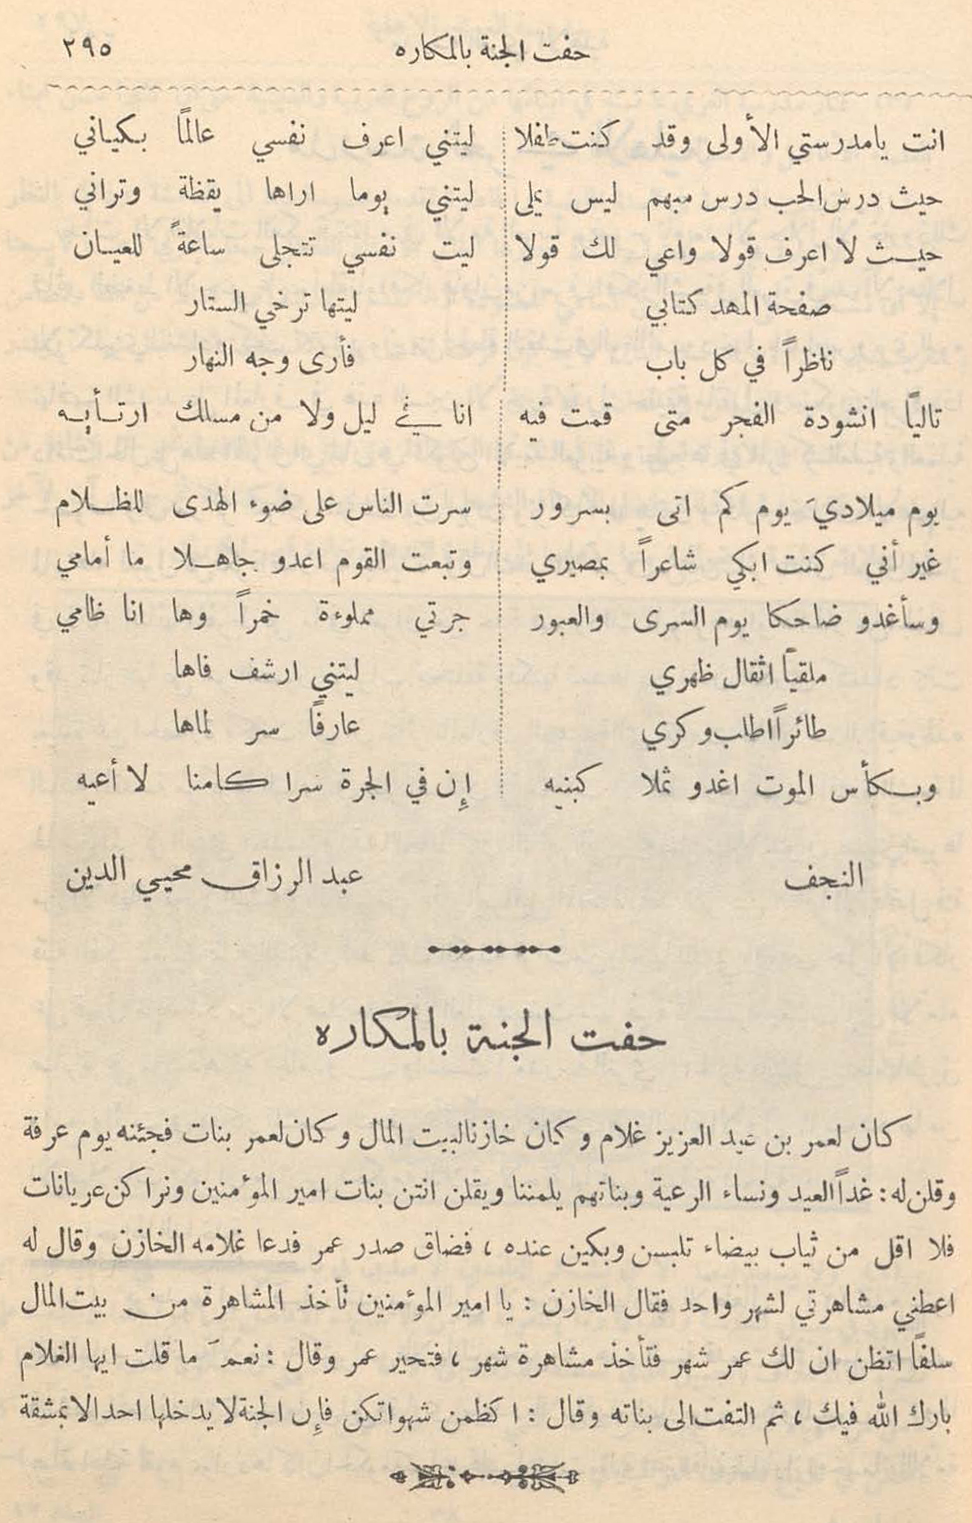 حفت الجنة بالمكاره ٢٩٥
انت يامدرستي الأولى وقد كنت طفلا ليتني اعرف نفسي عالمًا بكياني
حيث درس الحب درس مبهم ليس يملى ليتني يوما اراها يقظة وتراني
حيث لا اعرف قولا واعي لك قولا ليت نفسي تتجلى ساعةً للعيان
صفحة المهد كتابي ليتها ترخي الستار
ناظراً في كل باب فأرى وجه النهار
تاليًا انشودة الفجر متى قمت فيه انا في ليل ولا من مسلك ارتأيه
يوم ميلاديَ يوم كم اتى بسرور سرت الناس على ضوء الهدى للظلام
غير أني كنت ابكي شاعراً بمصيري وتبعت القوم اعدو جاهلا ما أمامي
وسأغدو ضاحكا يوم السرى والعبور جرتي مملوءة خمراً وها انا ظامي
ملقيًا اثقال ظهري ليتني ارشف فاها
طائراً اطلب وكري عارفًا سر لماها
وبكأس الموت اغدو ثملا كبنيه إن في الجرة سرا كامنا لا أعيه
النجف عبد الرزاق محيي الدين
حفت الجنة بالمكاره
كان لعمر بن عبد العزيز غلام وكان خازنا لبيت المال وكان لعمر بنات فجئنه يوم عرفة
وقلن له : غداً العيد ونساء الرعية وبناتهم يلمننا ويقلن انتن بنات امير المؤمنين ونراكن عريانات
فلا اقل من ثياب بيضاء تلبسن وبكين عنده ، فضاق صدر عمر فدعا غلامه الخازن وقال له
اعطني مشاهرتي لشهر واحد فقال الخازن : يا امير المؤمنين تأخذ المشاهرة من بيت المال
سلفًا اتظن ان لك عمر شهر فتأخذ مشاهرة شهر ، فتحير عمر وقال : نعمَ ما قلت ايها الغلام
بارك الله فيك ، ثم التفت الى بناته وقال : اكظمن شهواتكن فإن الجنة لا يدخلها احد الا بمشقة